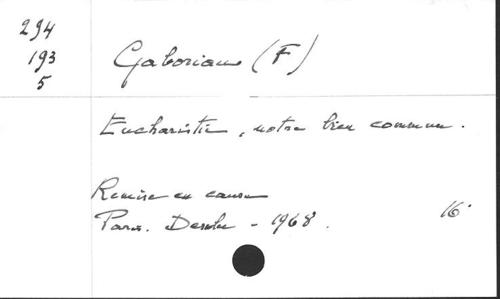 294
193
5
Gaboriau (F)
Eucharistie, notre bien commun.
Remise en cause
Paris. Desclée - 1968.
16°